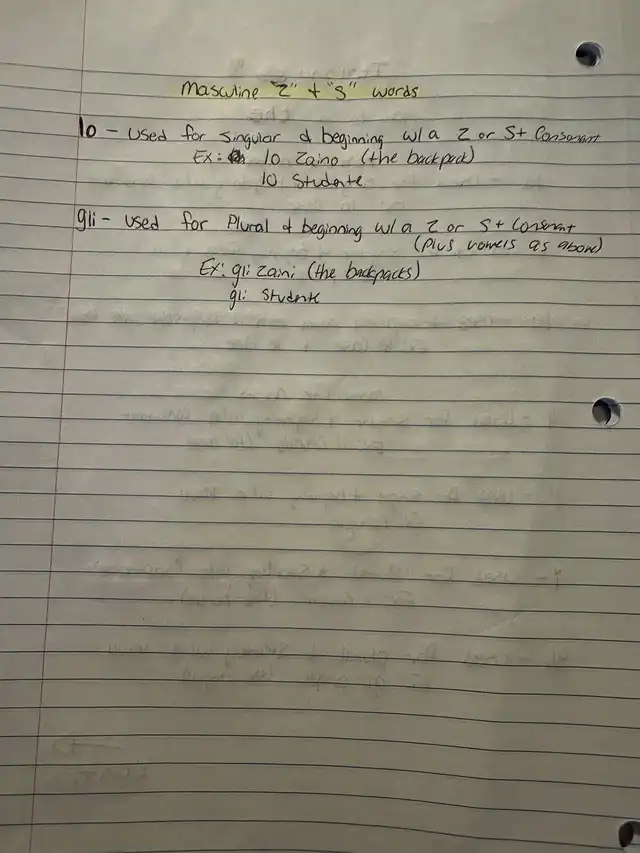 Masculine "Z" + "S" words
lo - used for singular & beginning w/ a Z or S+ Consonant
Ex: lo zaino (the backpack)
lo Studente
gli - used for Plural & beginning w/ a Z or S+ Consonant
(plus vowels as above)
Ex: gli zaini (the backpacks)
gli Studente